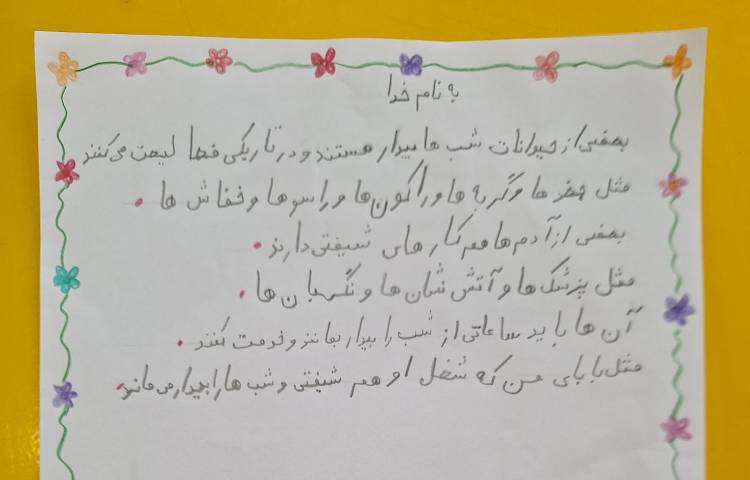 به نام خدا
بعضی از حیوانات شب ها بیدار هستند و در تاریکی فضا لیحت می کنند
مثل جغد ها و گربه ها و راکون ها و راسو ها و خفاش ها .
بعضی از آدم ها هم کار های شیفتی دارند .
مثل پزشک ها و آتش نشان ها و نگهبان ها .
آن ها باید ساعاتی از شب را بیدار بمانند و خدمت کنند .
مثل بابای من که شغل او هم شیفتی و شب ها را بیدار می ماند .